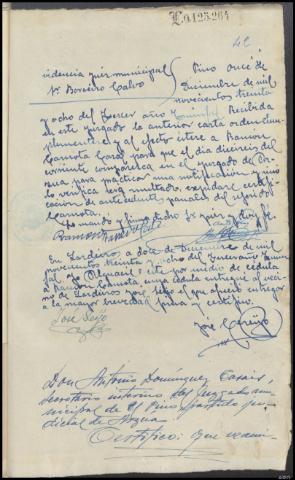 L 0125264
42
videncia Juez municipal
Sr. Boreiro Calvo
Pino once de
Diciembre de mil
novecientos treinta
y ocho del Tercer año Triunfal. Recibida
en este juzgado la anterior carta orden cúm-
plimente, y al efecto citese a Ramón
Camota Casal para que el dia dieciseis del
corriente comparezca en el juzgado de Ar-
zua para practicar una notificación y si no
lo verifica será multado, expidase certifi-
cación de antecedentes penales del referido
Camota.
Lo mandó y firma dicho Sr. Juez y doy fe.
En Lardeiros a doce de Diciembre de mil
novecientos treinta y ocho del Tercer año Triun-
fal yo Alguacil cité por medio de cedula
a Ramón Camota, cuya cedula entregué al veci-
no de Lardeiros José Seijo el que ofreció entregar
a la mayor brevedad firma y certifico.
José Seijo
José
Don Antonio Domínguez Casais,
Secretario interino del Juzgado mu-
nicipal de El Pino partido ju-
dicial de Arzua
Certifico: Que exami-